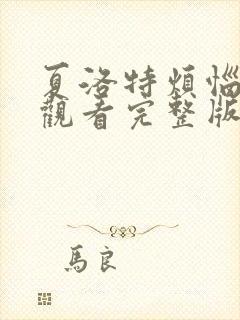 夏洛特煩惱
觀看完整版
馬良